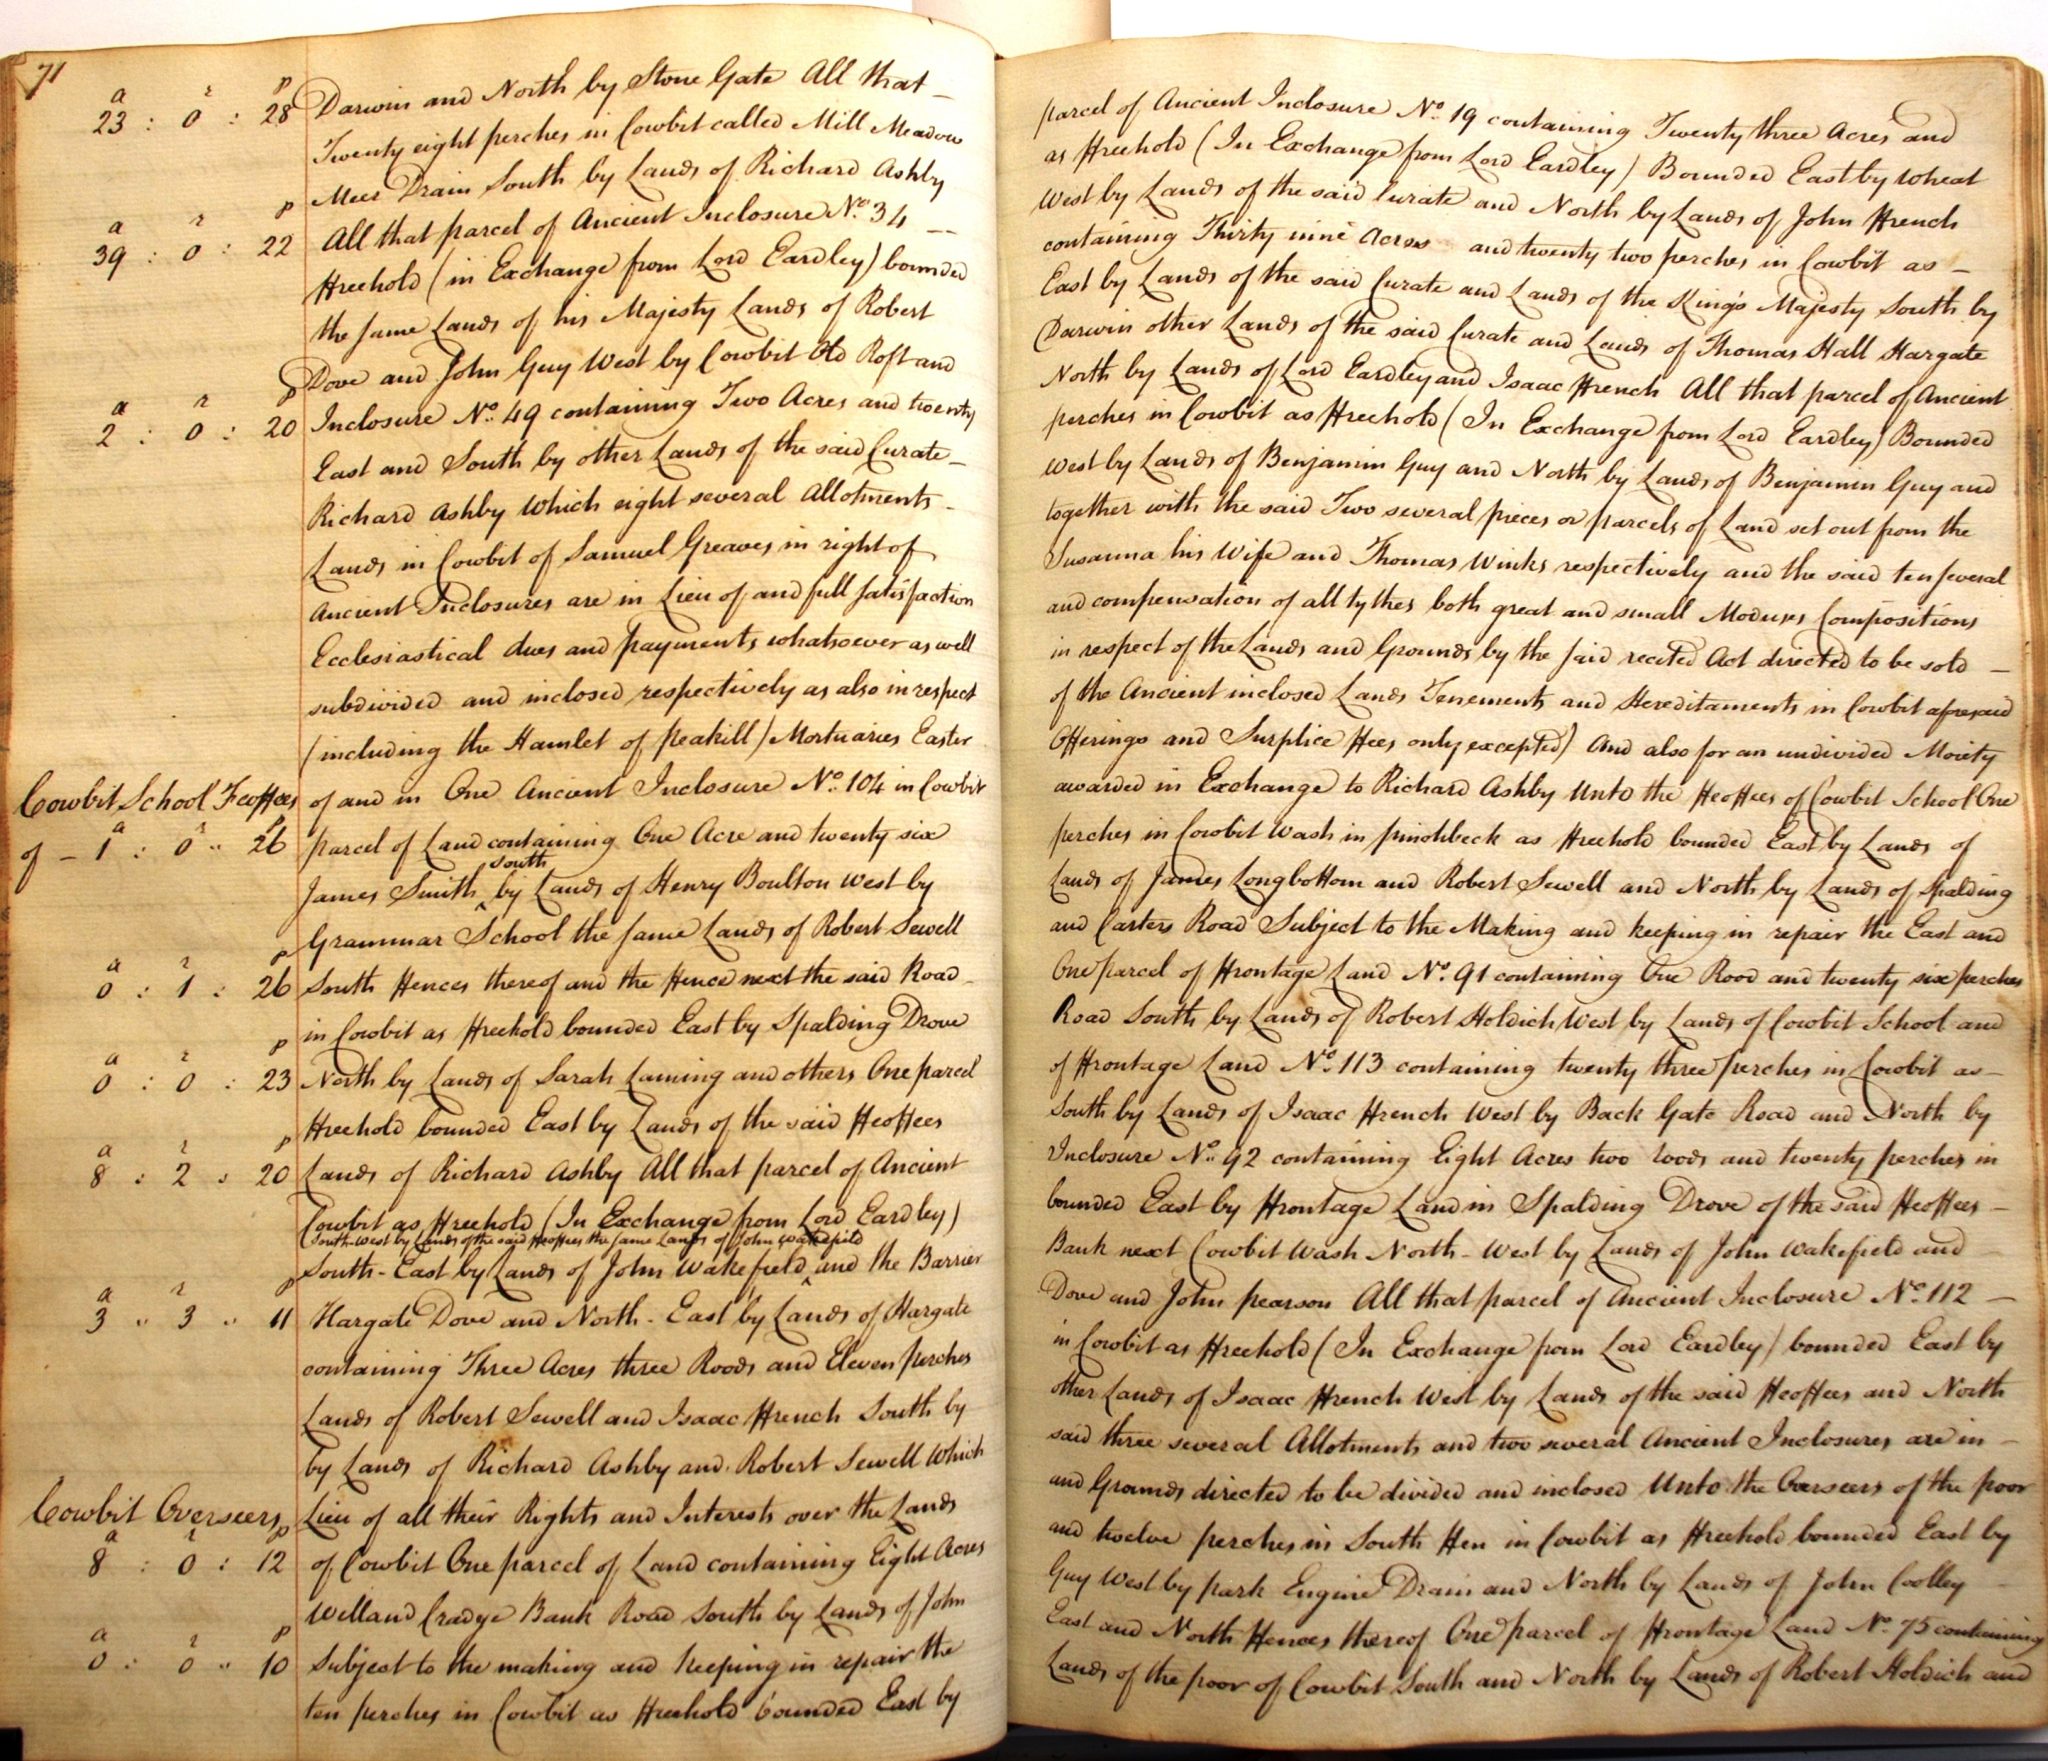 71
a r p
23 : 0 : 28 Darwin and North by Stone Gate All that – parcel of Ancient Inclosure No. 19 containing Twenty three Acres and
Twenty eight perches in Cowbit called Mill Meadow as Freehold (In Exchange from Lord Eardley) Bounded East by Wheat
Meer Drain South by Lands of Richard Ashby West by Lands of the said Curate and North by Lands of John French
a r p
39 : 0 : 22 All that parcel of Ancient Inclosure No. 34 – – containing Thirty nine Acres and twenty two perches in Cowbit as –
Freehold (in Exchange from Lord Eardley) bounded East by Lands of the said Curate and Lands of the King's Majesty South by
the same Lands of his Majesty Lands of Robert Darwin other Lands of the said Curate and Lands of Thomas Hall Hargate
Dove and John Guy West by Cowbit Old Roft and North by Lands of Lord Eardley and Isaac French All that parcel of Ancient
a r p
2 : 0 : 20 Inclosure No. 49 containing Two Acres and twenty perches in Cowbit as Freehold (In Exchange from Lord Eardley) Bounded
East and South by other Lands of the said Curate – West by Lands of Benjamin Guy and North by Lands of Benjamin Guy and
Richard Ashby Which eight several Allotments – together with the said Two several pieces or parcels of Land set out from the
Lands in Cowbit of Samuel Greaves in right of Susanna his Wife and Thomas Winks respectively and the said ten several
Ancient Inclosures are in Lieu of and full satisfaction and compensation of all tythes both great and small Moduses Compositions
Ecclesiastical dues and payments whatsoever as well in respect of the Lands and Grounds by the said recited Act directed to be sold –
subdivided and inclosed respectively as also in respect of the Ancient inclosed Lands Tenements and Hereditaments in Cowbit aforesaid
(including the Hamlet of peakill) Mortuaries Easter Offerings and Surplice Fees only excepted) And also for an undivided Moiety
Cowbit School Feoffees of and in One Ancient Inclosure No. 104 in Cowbit awarded in Exchange to Richard Ashby Unto the Feoffees of Cowbit School One
a r p
of – 1 : 0 " 26 parcel of Land containing One Acre and twenty six perches in Cowbit Wash in pinchbeck as Freehold bounded East by Lands of
James Smith south by Lands of Henry Boulton West by Lands of James Longbottom and Robert Sewell and North by Lands of Spalding
Grammar School the same Lands of Robert Sewell and Carters Road Subject to the Making and keeping in repair the East and
a r p
0 : 1 : 26 South Fences thereof and the Fence next the said Road – One parcel of Frontage Land No. 91 containing One Rood and twenty six perches
in Cowbit as Freehold bounded East by Spalding Drove Road South by Lands of Robert Holdich West by Lands of Cowbit School and
a r p
0 : 0 : 23 North by Lands of Sarah Laming and others One parcel of Frontage Land No. 113 containing twenty three perches in Cowbit as –
Freehold bounded East by Lands of the said Feoffees South by Lands of Isaac French West by Back Gate Road and North by
a r p
8 : 2 : 20 Lands of Richard Ashby All that parcel of Ancient Inclosure No. 92 containing Eight Acres two roods and twenty perches in
Cowbit as Freehold (In Exchange from Lord Eardley) bounded East by Frontage Land in Spalding Drove of the said Feoffees –
South West by Lands of the said Feoffees the same Lands of John Wakefield
South-East by Lands of John Wakefield and the Barrier Bank next Cowbit Wash North-West by Lands of John Wakefield and
a r p
3 " 3 " 11 Hargate Dove and North-East by Lands of Hargate Dove and John pearson All that parcel of Ancient Inclosure No. 112 –
containing Three Acres three Roods and Eleven perches in Cowbit as Freehold (In Exchange from Lord Eardley) bounded East by
Lands of Robert Sewell and Isaac French South by other Lands of Isaac French West by Lands of the said Feoffees and North
by Lands of Richard Ashby and Robert Sewell Which said three several Allotments and two several Ancient Inclosures are in –
Cowbit Overseers Lieu of all their Rights and Interests over the Lands and Grounds directed to be divided and inclosed Unto the Overseers of the poor
a r p
8 : 0 : 12 of Cowbit One parcel of Land containing Eight Acres and twelve perches in South Fen in Cowbit as Freehold bounded East by
Welland Cradge Bank Road South by Lands of John Guy West by park Engine Drain and North by Lands of John Colley
a r p
0 : 0 " 10 Subject to the making and keeping in repair the East and North Fences thereof One parcel of Frontage Land No. 75 containing
ten perches in Cowbit as Freehold bounded East by Lands of the poor of Cowbit South and North by Lands of Robert Holdich and